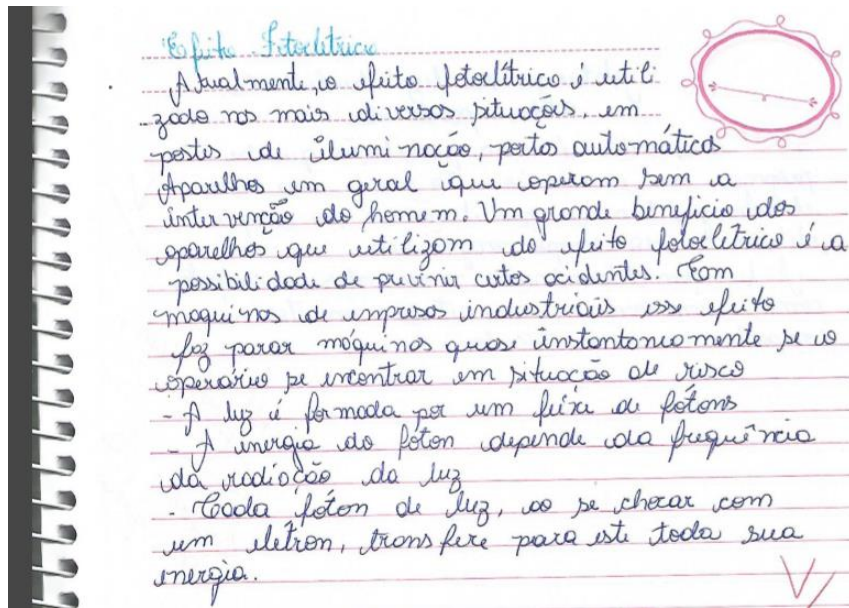 Efeito Fotoelétrico
Atualmente, o efeito fotoelétrico é utili
zado nos mais diversos situações, em
postes de ilumi nação, portas automáticas
Aparelhos em geral que operam sem a
inter venção do homem. Um grande beneficio dos
aparelhos que utilizam do efeito fotoelétrico é a
possibilidade de previnir certos acidentes. Com
maquinas de empresas industriais esse efeito
faz parar máquinas quase instantaneamente se o
operário se encontrar em situação de risco
- A luz é formada por um feixe de fótons
- A energia do fóton depende da frequência
da radiação da luz
- Cada fóton de luz, ao se chocar com
um elétron, trans fere para este toda sua
energia.